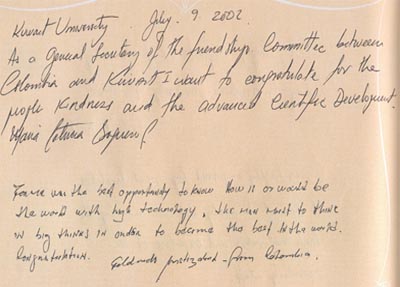 Kuwait University July. 9. 2002.
As a General Secretary of the friendships Committee between
Colombia and Kuwait I want to congratulate for the
people Kindness and the advanced Cientific Development.
Maria
For me was the best opportunity to know How is or would be
the world with high technology, the men must to think
in big thinks in order to become the best in the world.
Congratulation.
from Colombia.